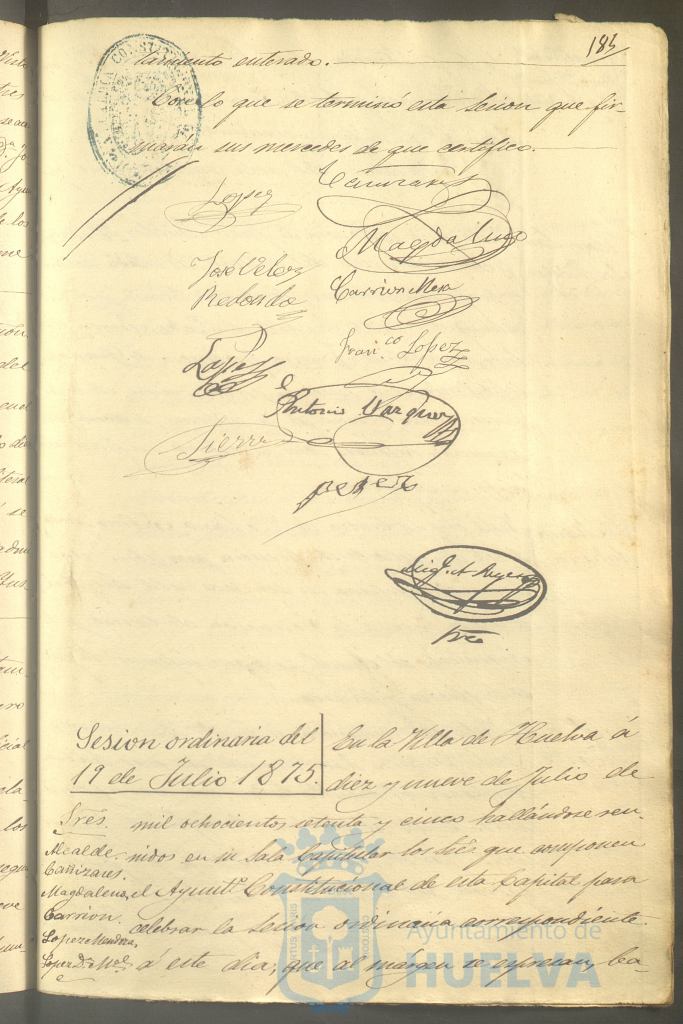 185
tamiento enterado.
Con lo que se terminó esta sesion que fir-
marán sus mercedes de que certifico.
Lopez
Cañizares
Magdalena
José Velez
Redondo
Carrion Mesa
Lopez
Fran.co Lopez
Antonio Vazquez
Sierra
perez
Srio
Sesion ordinaria del
19 de Julio 1875.
En la Villa de Huelva á
diez y nueve de Julio de
Sres. mil ochocientos setenta y cinco hallándose reu-
Alcalde. nidos en su Sala Capitular los Sres que componen
Cañizares.
Magdalena, el Ayunt.o Constitucional de esta Capital para
Carrion. celebrar la sesion ordinaria correspondiente
Lopez Mendoza,
Lopez D. Ml. á este dia, que al margen se espresan, ba-
Ayuntamiento de
HUELVA